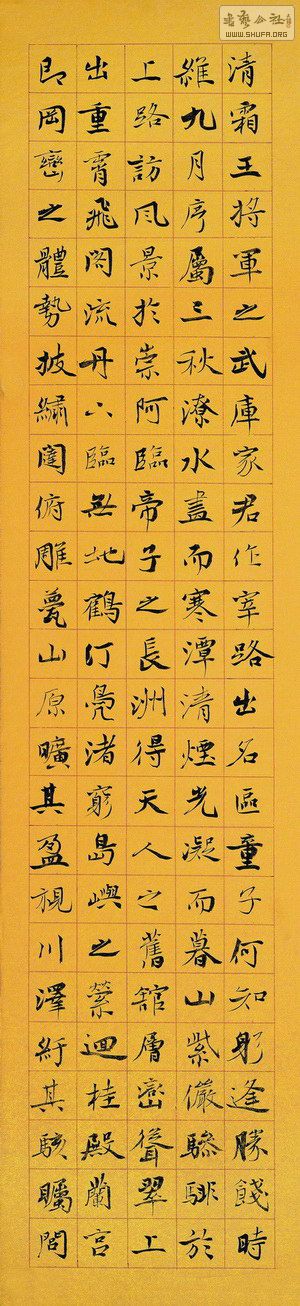 書藝公社
WWW.SHUFA.ORG
清霜王將軍之武庫家君作宰路出名區童子何知躬逢勝餞時
維九月序屬三秋潦水盡而寒潭清煙光凝而暮山紫儼驂騑於
上路訪風景於崇阿臨帝子之長洲得天人之舊館層巒聳翠上
出重霄飛閣流丹下臨無地鶴汀鳧渚窮島嶼之縈迴桂殿蘭宮
即岡巒之體勢披繡闥俯雕甍山原曠其盈視川澤紆其駭矚閭